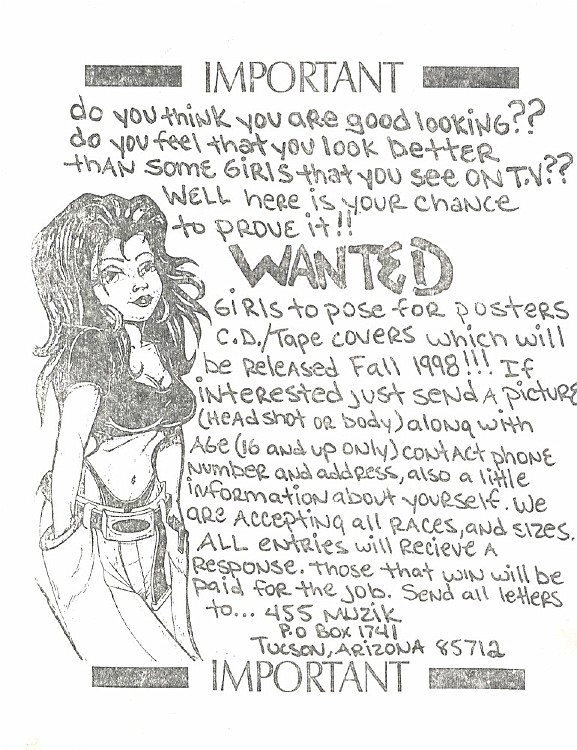 IMPORTANT
do you think you are good looking??
do you feel that you look better
than some girls that you see on T.V??
Well here is your chance
to prove it!!
WANTED
Girls to pose for posters
C.D./Tape covers which will
be released Fall 1998!!! If
interested just send a picture
(Headshot or body) along with
Age (16 and up only) contact phone
number and address, also a little
information about yourself. We
are accepting all races, and sizes.
ALL entries will recieve a
response. Those that win will be
paid for the job. Send all letters
to... 455 Muzik
P.O Box 1741
Tucson, Arizona 85712
IMPORTANT